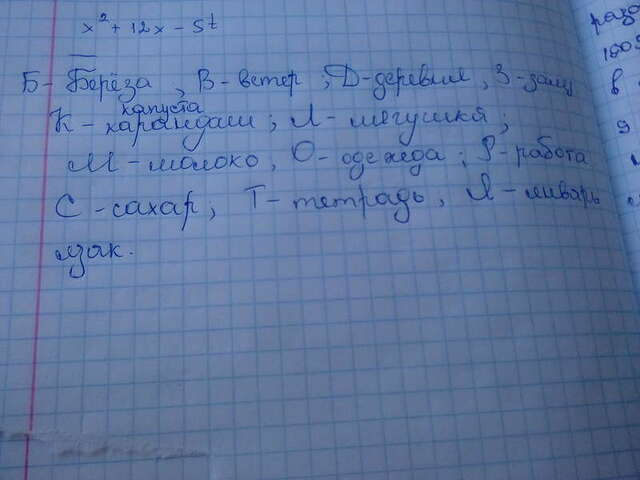 x² + 12x – 5t
Б – Берёза, В – ветер; Д – деревня, З – заяц
капуста
К – карандаш; Л – лягушка;
М – молоко, О – одежда; Р – работа
С – сахар; Т – тетрадь, Я – январь
язык.
разо
в
9